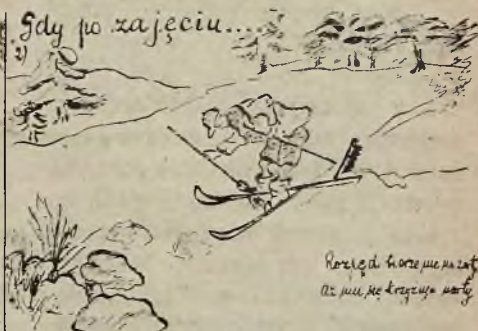 Gdy po zajęciu....
2)
Rozpęd bierze nie na żarty
Aż mu się krzyżują narty